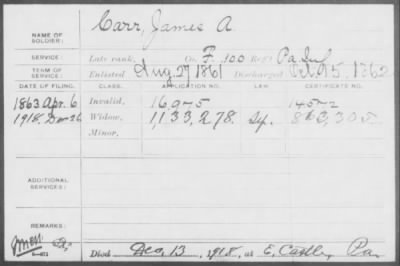 Carr, James A.
NAME OF SOLDIER:
SERVICE: Late rank, Co. F. 100 Reg't Pa Inf
TERM OF SERVICE: Enlisted Aug 27 1861 Discharged 15, 1862
DATE OF FILING. CLASS. APPLICATION NO. LAW. CERTIFICATE NO.
1863 Apr. 6 Invalid,
1918. Dec 26 Widow, 1,133,278.
Minor,
ADDITIONAL SERVICES:
REMARKS:
Died Dec, 13, 1918, at E, Pa